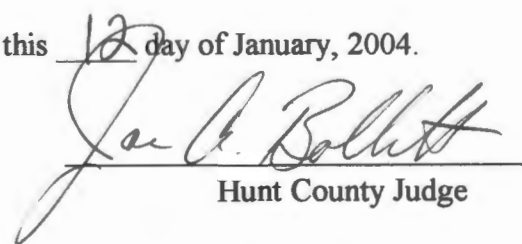 this 12 day of January, 2004.
Joe A. Bobbitt
Hunt County Judge